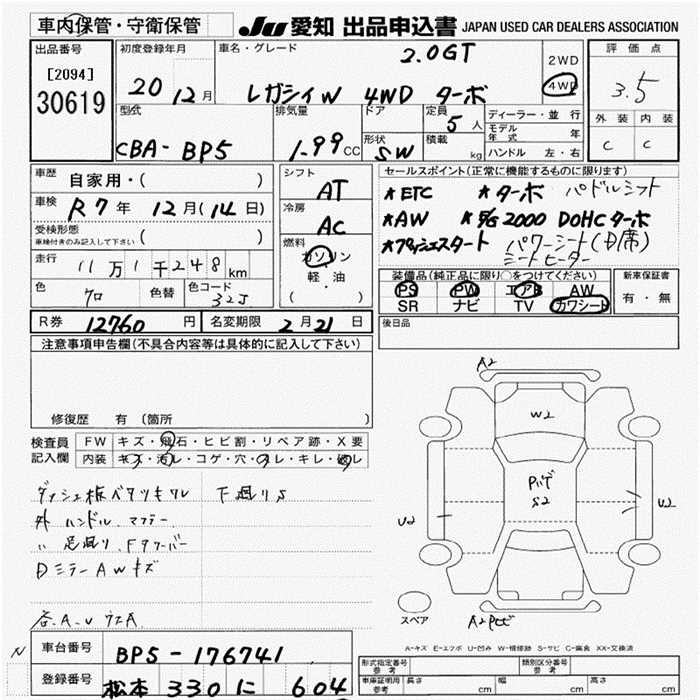 車内保管・守衛保管
JU 愛知 出品申込書 JAPAN USED CAR DEALERS ASSOCIATION
出品番号
[2094]
30619
初度登録年月
20 12月
車名・グレード
2.0GT
レガシィW 4WD ターボ
2WD
4WD
評価点
3.5
外装 内装
C C
型式
CBA-BP5
排気量
1.99cc
ドア
形状
SW
定員
5人
積載
kg
ディーラー・並行
モデル年式 年
ハンドル 左・右
車歴
自家用・( )
車検
R7年 12月(14日)
受検形態
車検付きのみ記入して下さい
( )
走行
11万1千248km
色
クロ
色替
色コード
32J
シフト
AT
冷房
AC
燃料
ガソリン
軽・油
( )
セールスポイント(正常に機能するものに限ります)
★ETC ★ターボ パドルシフト
★AW ★5/G2000 DOHCターボ
★プッシュスタート パワーシート(D席)
シートヒーター
装備品(純正品に限り○をつけてください)
PS PW エアB AW
SR ナビ TV カワシート
新車保証書
有・無
R券 12760円
名変期限 2月21日
後日品
注意事項申告欄(不具合内容等は具体的に記入して下さい)
修復歴 有 (箇所
検査員記入欄
FW キズ・飛石・ヒビ割・リペア跡・X要
内装 キズ・汚レ・コゲ・穴・スレ・キレ・破レ
ダッシュ板ベタツキワレ 下廻りS
外 ハンドル.マフラー.
〃 足廻り.Fタワーバー
DミラーAWキズ
各A.U
A2
W2
Pハゲ
S2
U2
U2
スペア
A-キズ E-エクボ U-凹み W-補修跡 S-サビ C-腐食 XX-交換済
N
車台番号
BP5-176741
登録番号
松本 330 に 604
形式指定番号
参考
類別区分番号
参考
車庫証明用
参考
長さ cm
幅 cm
高さ cm